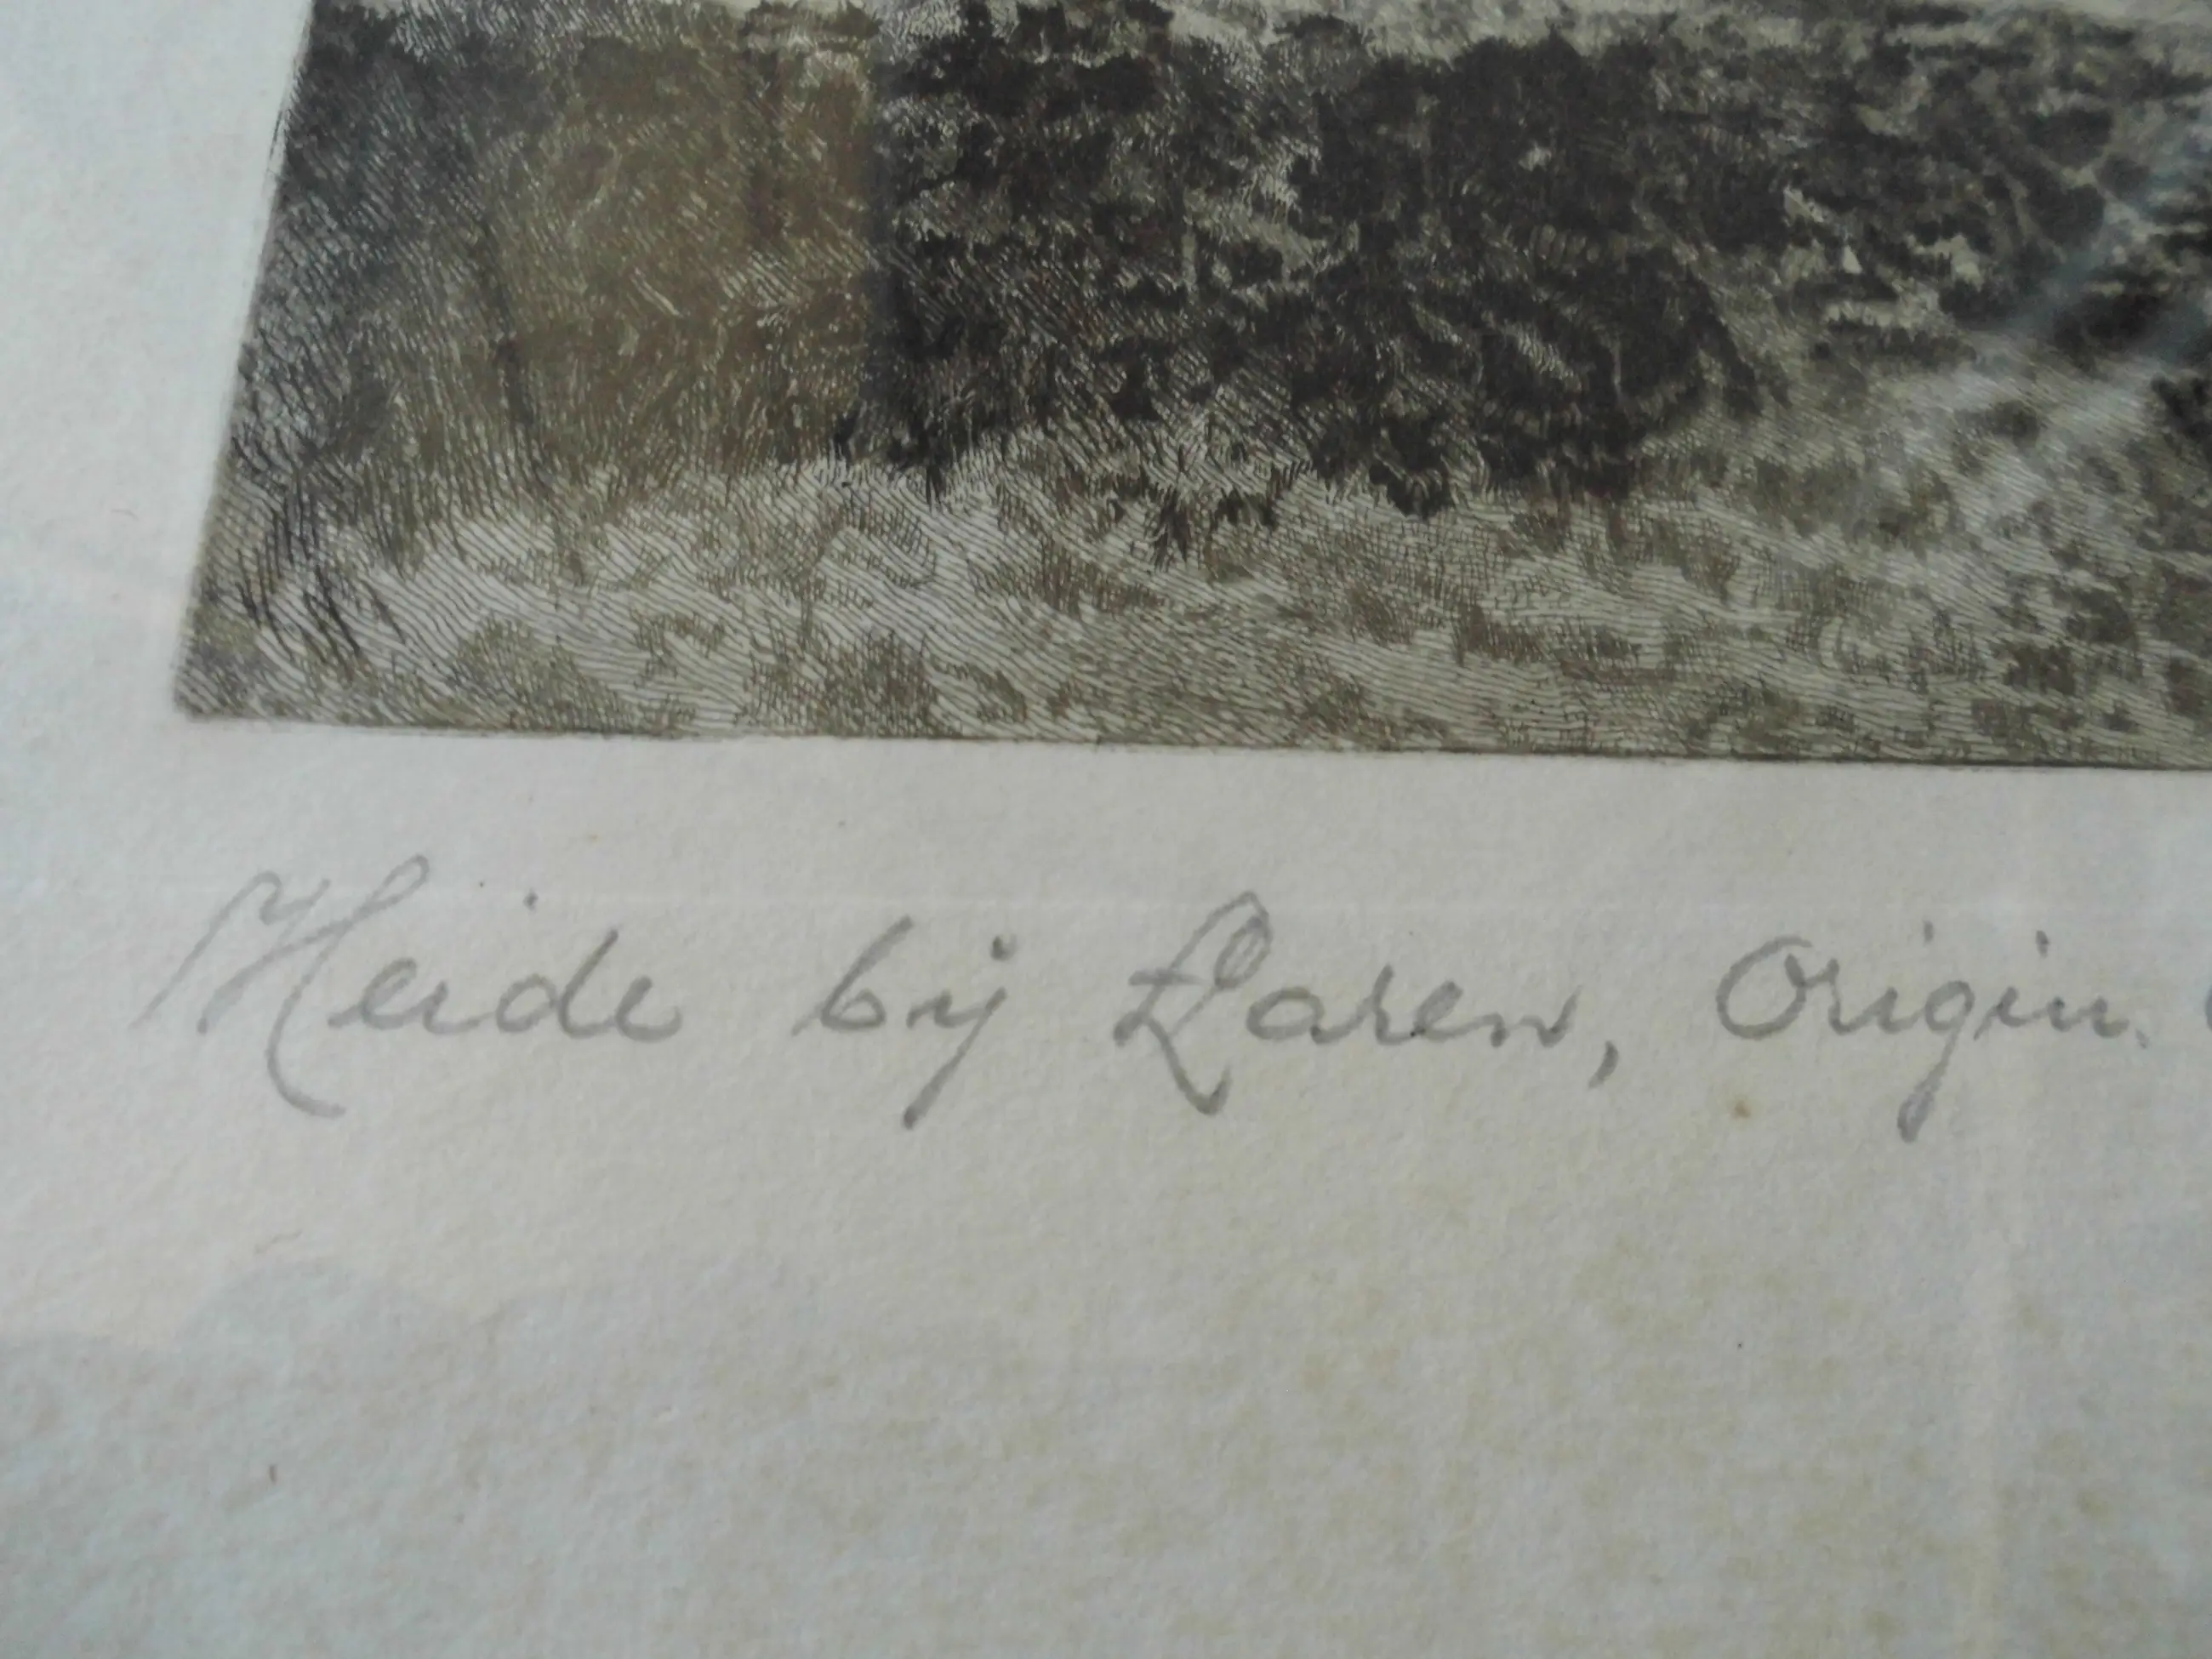 Heide bij Laren, Origin.